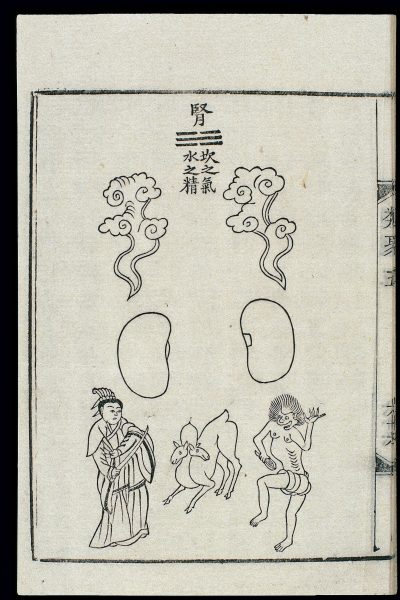 腎
坎之氣
水之精
類聚五